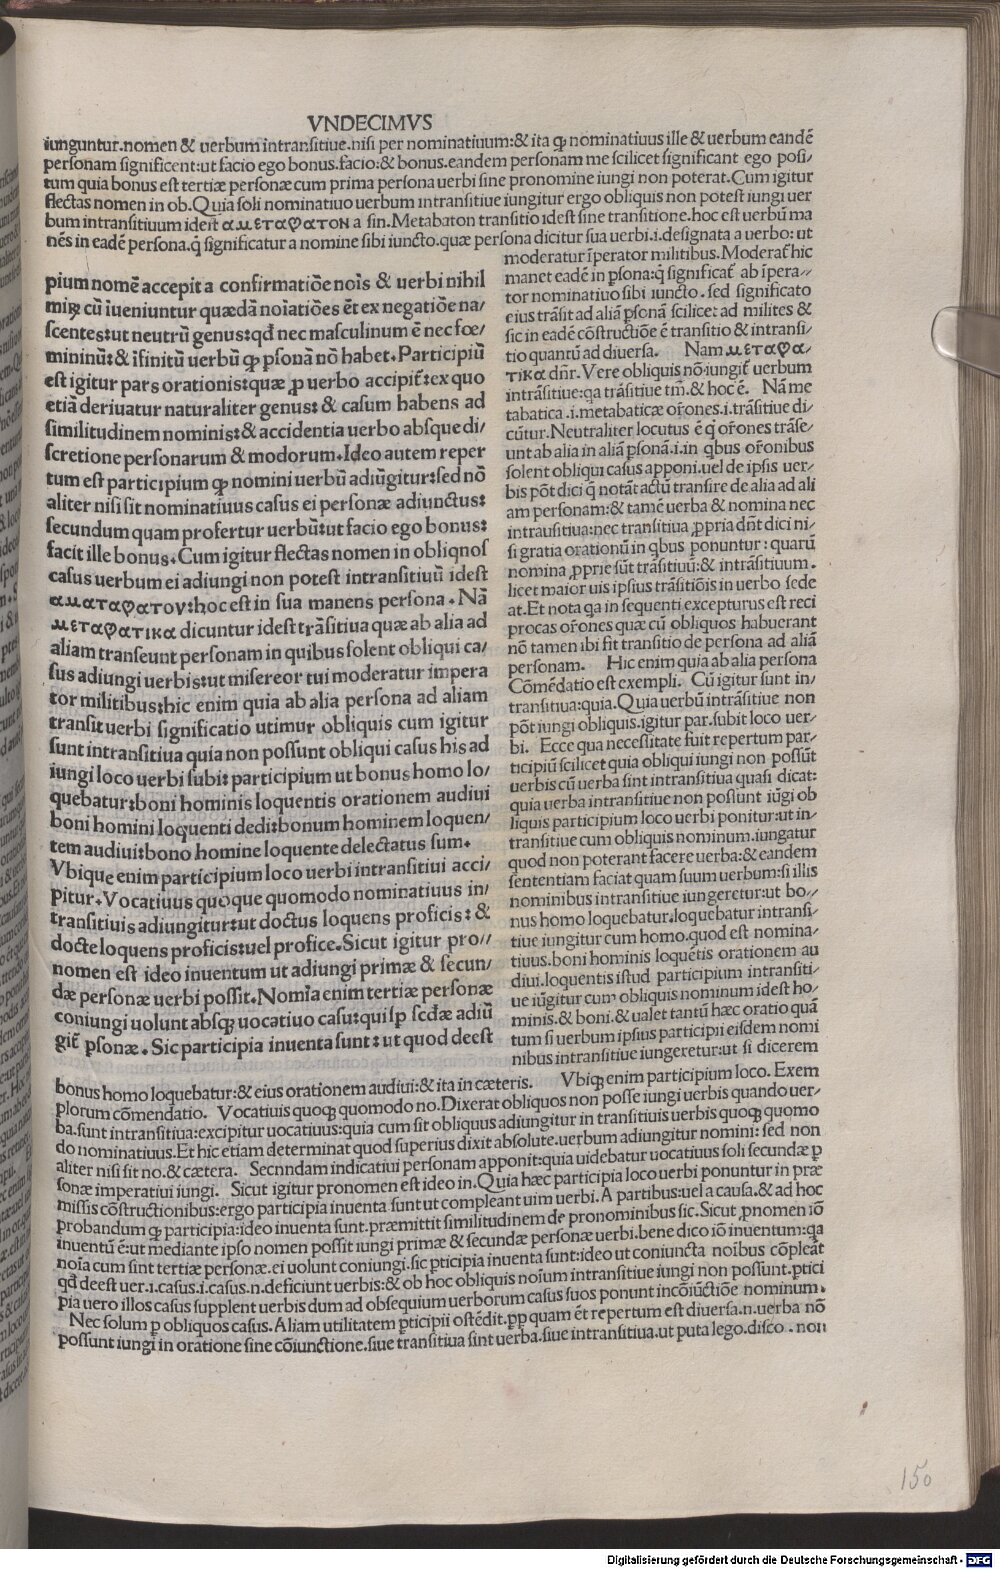 VNDECIMVS
iunguntur.nomen & uerbum intransitiue.nisi per nominatiuum:& ita ꝙ nominatiuus ille & uerbum eandē
personam significent:ut facio ego bonus.facio:& bonus.eandem personam me scilicet significant ego posi/
tum quia bonus est tertiæ personæ cum prima persona uerbi sine pronomine iungi non poterat.Cum igitur
flectas nomen in ob.Quia soli nominatiuo uerbum intransitiue iungitur ergo obliquis non potest iungi uer
bum intransitiuum idest αμεταφατον a sin.Metabaton transitio idest sine transitione.hoc est uerbū ma
nēs in eadē persona.q̄ significatur a nomine sibi iuncto.quæ persona dicitur sua uerbi.i.designata a uerbo: ut
pium nomē accepit a confirmatiōe nois & uerbi nihil
mirꝝ cū iueniuntur quædā noiatiōes ēt ex negatiōe na/
scentes:ut neutrū genus:qđ nec masculinum ē nec foe/
mininū:& īfinitū uerbū ꝙ psonā nō habet.Participiū
est igitur pars orationis:quæ ꝓ uerbo accipit̄:ex quo
etiā deriuatur naturaliter genus: & casum habens ad
similitudinem nominis:& accidentia uerbo absque di/
scretione personarum & modorum.Ideo autem reper
tum est participium ꝙ nomini uerbū adiūgitur:sed nō
aliter nisi sit nominatiuus casus ei personæ adiunctus:
secundum quam profertur uerbū:ut facio ego bonus:
facit ille bonus.Cum igitur flectas nomen in obliqnos
casus uerbum ei adiungi non potest intransitiuū idest
αματαφατον:hoc est in sua manens persona.Nā
μεταφατικα dicuntur idest trāsitiua quæ ab alia ad
aliam transeunt personam in quibus solent obliqui ca/
sus adiungi uerbis:ut misereor tui moderatur impera
tor militibus:hic enim quia ab alia persona ad aliam
transit uerbi significatio utimur obliquis cum igitur
sunt intransitiua quia non possunt obliqui casus his ad
iungi loco uerbi subit participium ut bonus homo lo/
quebatur:boni hominis loquentis orationem audiui
boni homini loquenti dedi:bonum hominem loquen/
tem audiui:bono homine loquente delectatus sum.
Vbique enim participium loco uerbi intransitiui acci/
pitur.Vocatiuus quoque quomodo nominatiuus in/
transitiuis adiungitur:ut doctus loquens proficis: &
docte loquens proficis:uel profice.Sicut igitur pro//
nomen est ideo inuentum ut adiungi primæ & secun/
dæ personæ uerbi possit.Nomīa enim tertiæ personæ
coniungi uolunt absqꝫ uocatiuo casu:qui sp scđæ adiū
git̄ psonæ.Sic participia inuenta sunt: ut quod deest
moderatur īperator militibus.Moderat̄ hic
manet eadē in psona:q̄ significat̄ ab īpera/
tor nominatiuo sibi iuncto.sed significato
eius trāsit ad aliā psonā scilicet ad milites &
sic in eadē cōstructiōe ē transitio & intransi/
tio quantū ad diuersa. Nam μεταφα/
τικα dnr̄.Vere obliquis nō iungit̄ uerbum
intrāsitiue:qa trāsitiue tm̄.& hoc ē. Nā me
tabatica.i.metabaticæ or̄ones.i.trāsitiue di/
cūtur.Neutraliter locutus ē q̄ or̄ones trāse/
unt ab alia in aliā psonā.i.in qbus or̄onibus
solent obliqui casus apponi.uel de ipsis uer/
bis pōt dici q̄ notāt actū transire de alia ad ali
am personam:& tamē uerba & nomina nec
intrausitiua:nec transitiua ꝓpria dn̄t dici ni/
si gratia orationū in qbus ponuntur: quarū
nomina ꝓprie sūt trāsitiuū:& intrāsitiuum.
licet maior uis ipsius trāsitiōis in uerbo sede
at.Et nota qa in sequenti excepturus est reci
procas or̄ones quæ cū obliquos habuerant
nō tamen ibi fit transitio de persona ad aliā
personam. Hic enim quia ab alia persona
Cōmēdatio est exempli. Cū igitur sunt in/
transitiua:quia.Quia uerbū intrāsitiue non
pōt iungi obliquis.igitur par.subit loco uer/
bi. Ecce qua necessitate fuit repertum par/
ticipiū scilicet quia obliqui iungi non possūt
uerbis cū uerba sint intransitiua quasi dicat:
quia uerba intransitiue non possunt iūgi ob
liquis participium loco uerbi ponitur:ut in/
transitiue cum obliquis nominum.iungatur
quod non poterant facere uerba:& eandem
sententiam faciat quam suum uerbum:si illis
nominibus intransitiue iungeretur:ut bo/
nus homo loquebatur.loquebatur intransi/
tiue iungitur cum homo.quod est nomina/
tiuus.boni hominis loquētis orationem au
diui.loquentis istud participium intransiti/
ue iūgitur cum obliquis nominum idest ho/
minis.& boni.& ualet tantū hæc oratio quā
tum si uerbum ipsius participii eisdem nomi
nibus intransitiue iungeretur:ut si dicerem
bonus homo loquebatur:& eius orationem audiui:& ita in cæteris. Vbiqꝫ enim participium loco. Exem
plorum cōmendatio. Vocatiuis quoqꝫ quomodo no.Dixerat obliquos non posse iungi uerbis quando uer/
ba.sunt intransitiua:excipitur uocatiuus:quia cum sit obliquus adiungitur in transitiuis uerbis quoqꝫ quomo
do nominatiuus.Et hic etiam determinat quod superius dixit absolute.uerbum adiungitur nomini: sed non
aliter nisi sit no.& cætera. Secnndam indicatiui personam apponit:quia uidebatur uocatiuus soli secundæ ꝑ
sonæ imperatiui iungi. Sicut igitur pronomen est ideo in.Quia hæc participia loco uerbi ponuntur in præ
missis cōstructionibus:ergo participia inuenta sunt ut compleant uim uerbi.A partibus:uel a causa.& ad hoc
probandum ꝙ participia:ideo inuenta sunt.præmittit similitudinem de pronominibus sic.Sicut ꝓnomen iō
inuentū ē:ut mediante ipso nomen possit iungi primæ & secundæ personæ uerbi.bene dico iō inuentum:qa
noia cum sint tertiæ personæ.ei uolunt coniungi.sic pticipia inuenta sunt:ideo ut coniuncta noibus cōpleāt
qđ deest uer.i.casus.i.casus.n.deficiunt uerbis:& ob hoc obliquis noium intransitiue iungi non possunt.ptici
pia uero illos casus supplent uerbis dum ad obsequium uerborum casus suos ponunt incōiūctiōe nominum.
Nec solum ꝑ obliquos casus.Aliam utilitatem pticipii ostēdit.ꝓp quam ēt repertum est diuersa.n.uerba nō
possunt iungi in oratione sine cōiunctione.siue transitiua sint uerba.siue intransitiua.ut puta lego.disco.non
150
Digitalisierung gefördert durch die Deutsche Forschungsgemeinschaft - DFG